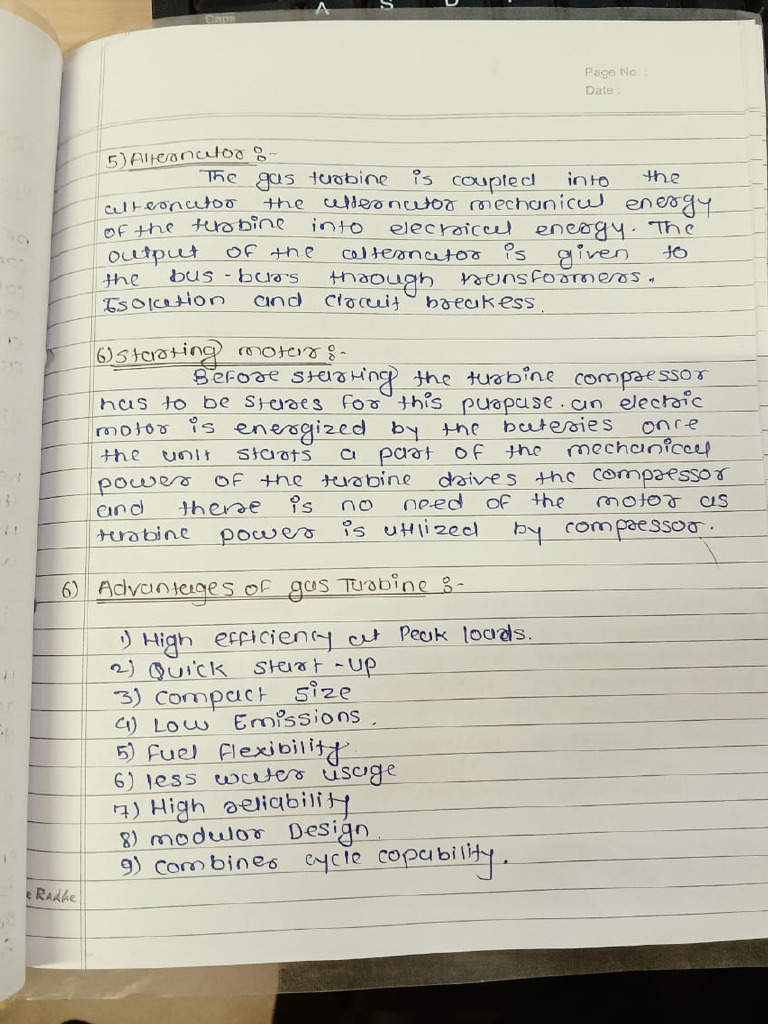 Caps
A S D
Page No. :
Date :
5) Alternator :-
The gas turbine is coupled into the
alternator the alternator mechanical energy
of the turbine into electrical energy. The
output of the alternator is given to
the bus-bars through transformers.
Isolation and circuit breakess.
6) Starting motor :-
Before starting the turbine compressor
has to be stares for this purpuse. an electric
motor is energized by the bateries once
the unit starts a part of the mechanical
power of the turbine drives the compressor
and there is no need of the motor as
turbine power is utilized by compressor.
6) Advantages of gas Turbine :-
1) High efficiency at Peak loads.
2) Quick start-up
3) compact size
4) Low Emissions.
5) Fuel flexibility.
6) less water usage
7) High reliability
8) modulor Design.
9) combiner cycle copability.
e Radhe